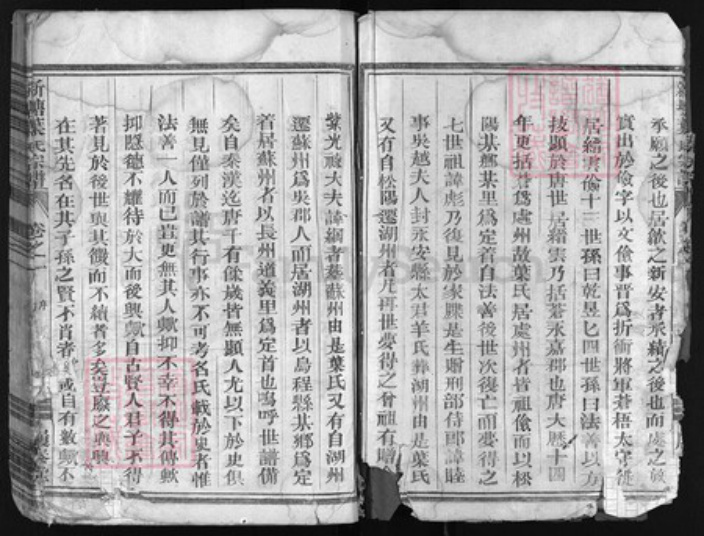 承願之後也居歙之新安者承績之後也而處之族
實出於儉字以文儉事晉爲折衝將軍蒼梧太守徙
居縉雲儉十三世孫曰乾昱七四世孫曰法善以方
技顯於唐世居縉雲乃括蒼永嘉郡也唐大曆十四
年更括蒼爲處州故葉氏居處州者皆祖儉而以松
陽某鄉某里爲定首自法善後世次復亡而夢得之
七世祖諱彪乃復見於家牒是生贈刑部侍郎諱睦
事吳越夫人封永安縣太君羊氏葬湖州由是葉氏
又有自松陽遷湖州者凡再世夢得之曾祖有贈金
紫光祿大夫諱綱者葬蘇州由是葉氏又有自湖州
遷蘇州爲吳郡人而居湖州者以烏程縣某鄉爲定
著居蘇州者以長州道義里爲定首也嗚呼世譜備
矣自秦漢迄唐千有餘歲皆無顯人尤以下於史俱
無見僅列於譜其行事亦不可考名氏載於史者惟
法善一人而已豈更無其人歟抑不幸不得其傳歟
抑隱德不耀待於大而後興歟自古賢人君子不得
著見於後世與其微而不續者多矣豈廢之與興
在其先名在其子孫之賢不肖者 或自有數歟不
新塘葉氏宗譜 卷之一 序